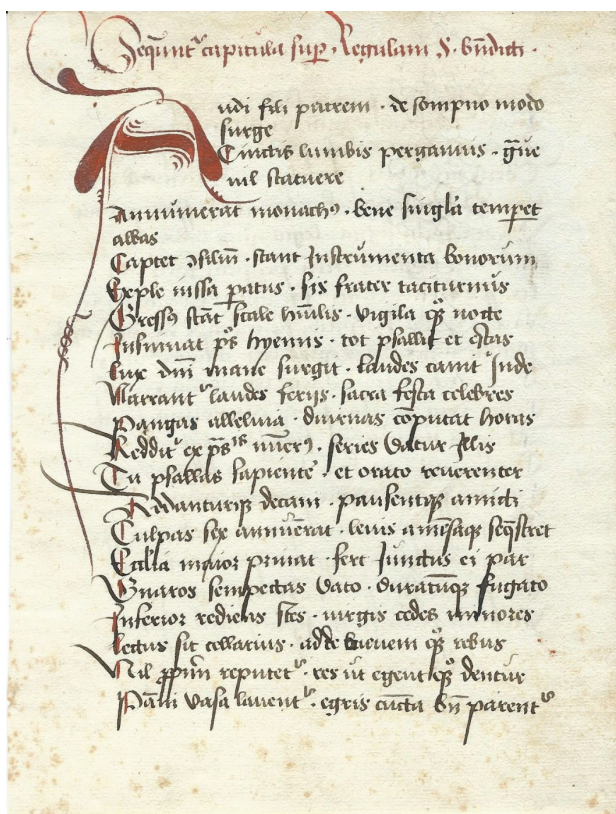 Sequnt᷑ capitula sup Regulam S. bn̄dicti.
Audi fili patrem . de sompno modo
surge
Cinctis lumbis pergamus . que
nil statuere
Annumerat monachꝰ . bene singla temperet
abbas
Captet ꝯsiliū . stant Instrumenta bonorum
Exple iussa patris . sis frater taciturnus
Gressꝰ stant scale hūilis . vigila qꝫ nocte
Insinuat pōs hyemis . tot psallit et estas
Luce dn̄i mane surgit . laudes canit Inde
Narrant᷑ laudes ferijs . sacra festa celebres
Pangas alleluia . diurnas cōputat horas
Reddit᷑ ex psīs nūerꝰ . series datur Illis
Tu psallas sapienter . et orato reuerenter
Addanturqꝫ decani . pausentqꝫ amicti
Culpas sex annūerat . leuis a mēsaqꝫ seqstret
Ecclīa maior priuat . fert Iunctus ei par
Gnaros sempectas dato . duratūqꝫ fugato
Inferior rediens stes . virgis cedes minores
Lectus sit cellarius . adde breuem qꝫ rebus
Nil ppriū reputet᷑ . res ut egent qꝫ dentur
Pāni vasa lauent᷑ . egris cūcta bn̄ parent᷑